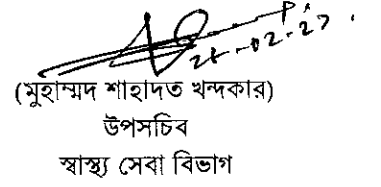 (মুহাম্মদ শাহাদত খন্দকার)
উপসচিব
স্বাস্থ্য সেবা বিভাগ